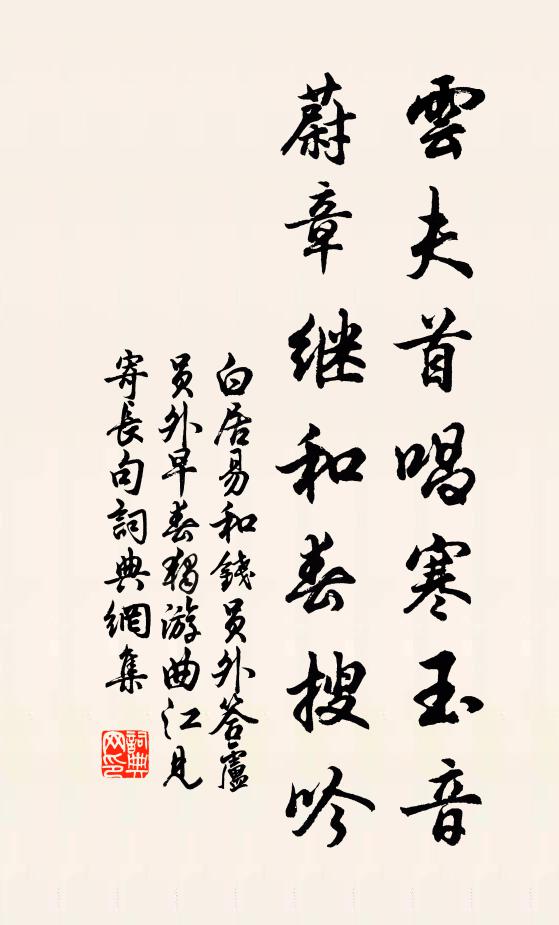 雲夫首唱寒玉音
蔚章继和春搜吟
白居易和錢員外答盧
員外早春獨游曲江見
寄長句詞典網集
詞典
网印